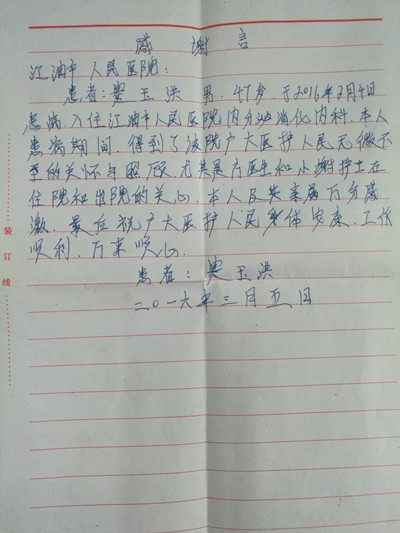 感谢言
江油市人民医院:
患者:窦玉洪 男. 47岁. 于2016年2月4日
患病.入住江油市人民医院内分泌消化内科.本人
患病期间.得到了该院广大医护人民无微不
至的关怀与照顾.尤其是方医生和小谢护士在
住院和出院的关心.本人及其家属万分感
激.最后祝广大医护人民身体安康.工作
顺利.万事顺心.
患者:窦玉洪
二〇一六年三月五日
装订线